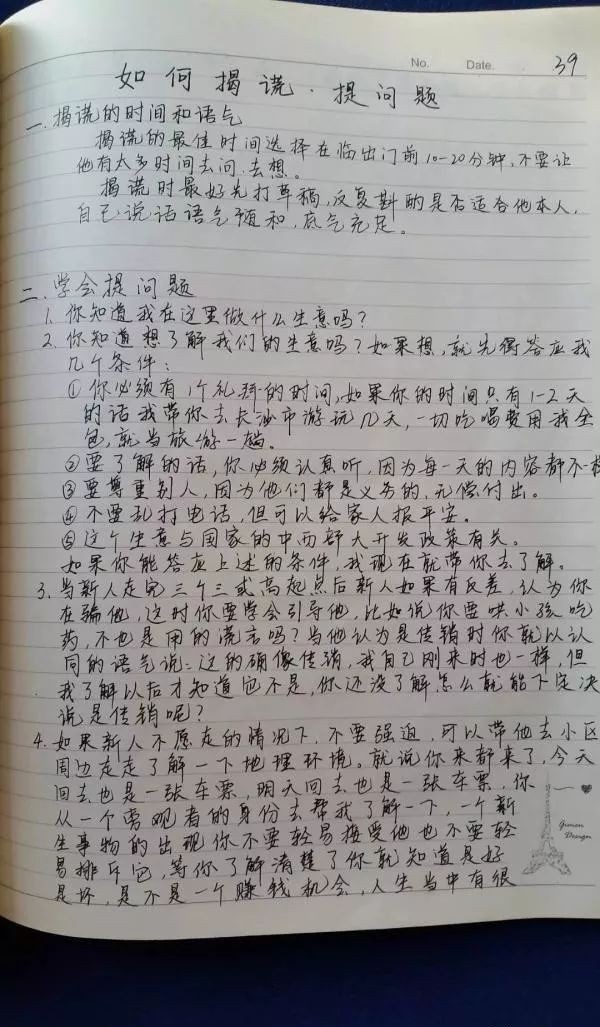 No. Date. 39
如何揭谎·提问题
一.揭谎的时间和语气
揭谎的最佳时间选择在临出门前10-20分钟,不要让
他有太多时间去问.去想。
揭谎时最好先打草稿,反复斟酌是否适合他本人,
自己说话语气平和,底气充足。
二.学会提问题
1.你知道我在这里做什么生意吗?
2.你知道想了解我们的生意吗?如果想,就先得答应我
几个条件:
①你必须有1个礼拜的时间,如果你的时间只有1-2天
的话我带你去长沙市游玩几天,一切吃喝费用我全
包,就当旅游一趟。
②要了解的话,你必须认真听,因为每一天的内容都不一样
③要尊重别人,因为他们都是义务的,无偿付出。
④不要乱打电话,但可以给家人报平安。
⑤这个生意与国家的中西部大开发政策有关。
如果你能答应上述的条件,我现在就带你去了解。
3.当新人走完三个三或高起点后新人如果有反差,认为你
在骗他,这时你要学会引导他,比如说你要哄小孩吃
药,不也是用的谎言吗?当他认为是传销时你就以认
同的语气说:这的确像传销,我自己刚来时也一样,但
我了解以后才知道它不是,你还没了解怎么就能下定决
说是传销呢?
4.如果新人不愿走的情况下,不要强迫,可以带他去小区
周边走走了解一下地理环境。就说你来都来了,今天
回去也是一张车票,明天回去也是一张车票,你
从一个旁观者的身份去帮我了解一下,一个新
生事物的出现你不要轻易接受他也不要轻
易排斥它,等你了解清楚了你就知道是好
是坏,是不是一个赚钱机会,人生当中有很
Design